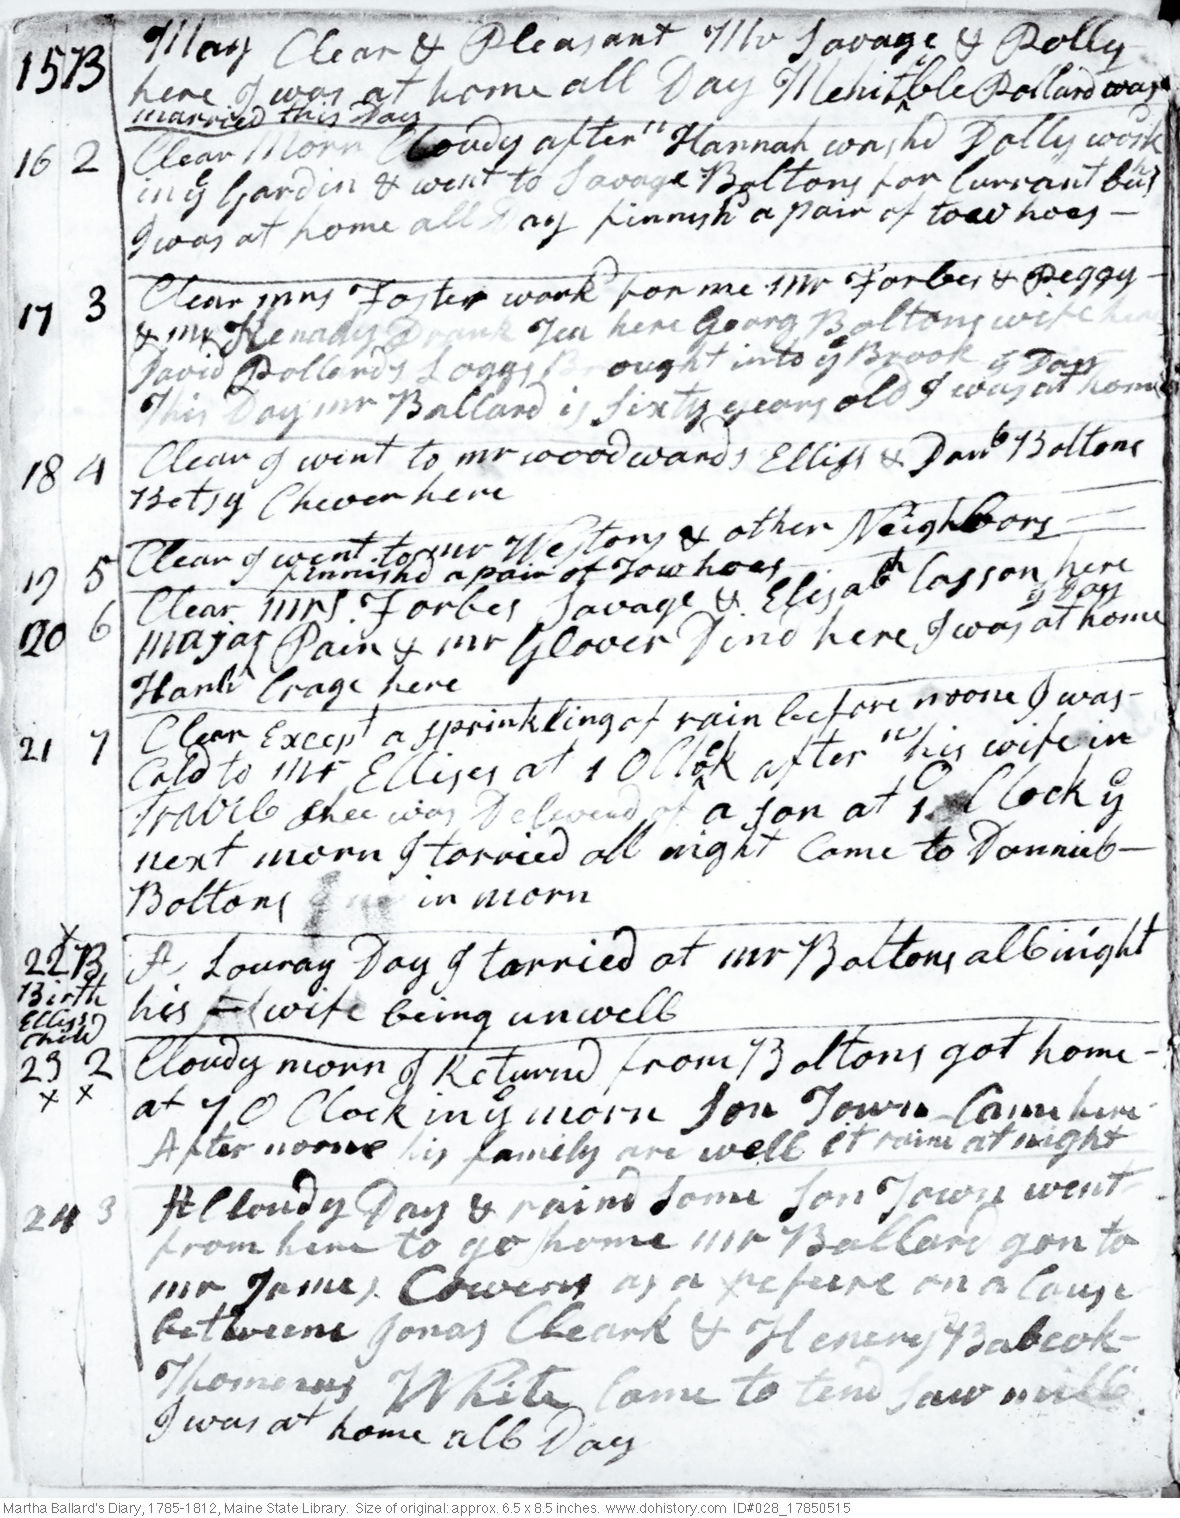 15 B May Clear & Pleasant Mr Savage & Polly
here I was at home all Day Mehitable Pollard was
married this Day
16 2 Clear Morn Cloudy aftern Hannah washd Dolly work
in ye Gardin & went to Savage Boltons for Currant bush
I was at home all Day finnishd a pair of tow hoes —
17 3 Clear mrs Foster workd for me mr Forbes & Peggy —
& mr Kenady Drank Tea here Georg Boltons wife here
David Pollards Loggs Brought into ye Brook ys Day
This Day mr Ballard is sixty years old I was at home
18 4 Clear I went to mr woodwards Elliss & Danb Boltons
Betsy Chever here
19 5 Clear I went to mr Westons & other Neighbors
finnishd a pair of Tow hoes
20 6 Clear mrs. Forbes Savage & Elisabh Casson here
ys Day
majar Pain & mr Glover Dind here I was at home
Hanh Crage here
21 7 Clear Except a sprinkling of rain before noone I was
Cald to mr Ellises at 1 O Clock aftern his wife in
Travil shee was Deliverd of a son at 1 O Clock ye
next morn I tarried all night Came to Danniel
Boltons in morn
x
22 B A Louray Day I tarried at mr Boltons all night
Birth his wife being unwell
Elliss
Child
23 2 Cloudy morn I Returnd from Boltons got home —
x x at 7 O Clock in ye morn son Town Came here
After noone his family are well it raind at night
24 3 A Cloudy Day & raind some son Town went
from here to go home mr Ballard gon to
mr James Cowens as a refeere on a Cause
betweene Jonas Cleark & Henery Babcok
Thomas White Came to tend saw mill.
I was at home all Day
Martha Ballard's Diary, 1785-1812, Maine State Library. Size of original: approx. 6.5 x 8.5 inches. www.dohistory.com ID#028_17850515